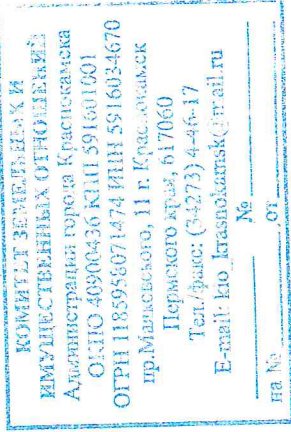 КОМИТЕТ ЗЕМЕЛЬНЫХ И
ИМУЩЕСТВЕННЫХ ОТНОШЕНИЙ
Администрации города Краснокамска
ОКПО 40900436 КПП 591601001
ОГРН 1185958071474 ИНН 5916034670
пр.Маяковского, 11 г. Краснокамск
Пермского края, 617060
Тел./факс: (34273) 4-46-17
E-mail: kio_krasnokamsk@mail.ru
№
на № от